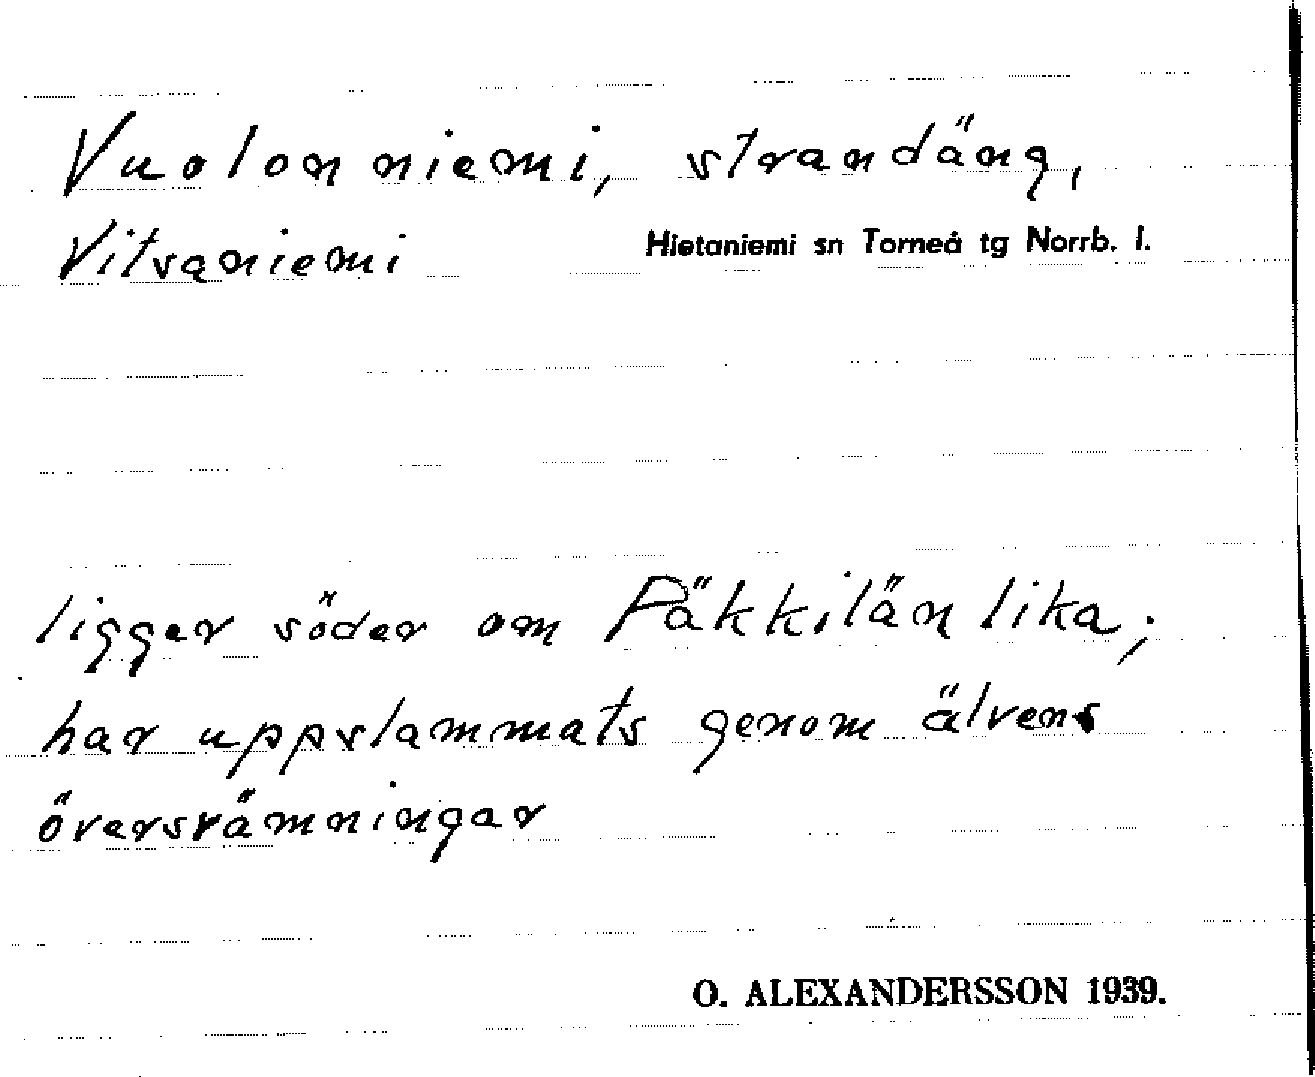 Vuolonniemi, strandäng,
Vitsaniemi Hietaniemi sn Torneå tg Norrb. l.
ligger söder om Päkkilän lika;
har uppslammats genom älvens
översvämningar
O. ALEXANDERSSON 1939.